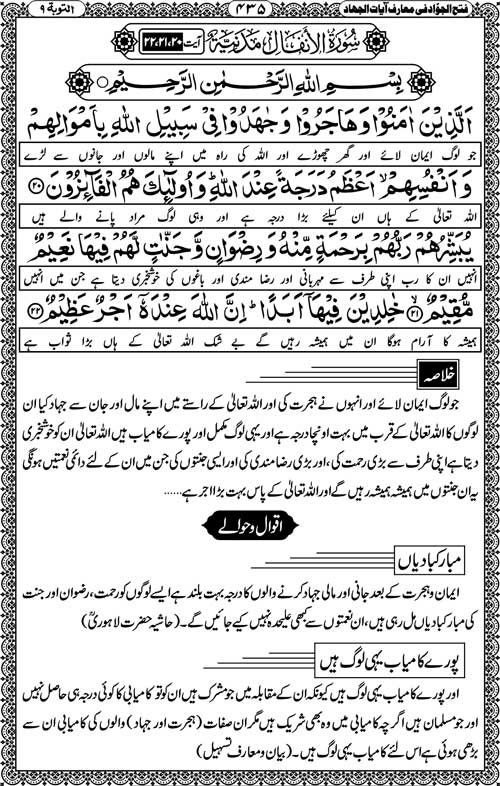 فتح الجوّاد فی معارف آیات الجهاد ۴۳۵ التوبة ۹
سُوْرَةُ الْأَنْفَالِ مَدَنِيَّةٌ آیت ۲۲،۲۱،۲۰
بِسْمِ اللهِ الرَّحْمٰنِ الرَّحِيْمِ
اَلَّذِيْنَ اٰمَنُوْا وَهَاجَرُوْا وَجٰهَدُوْا فِيْ سَبِيْلِ اللهِ بِاَمْوَالِهِمْ
جو لوگ ایمان لائے اور گھر چھوڑے اور اللہ کی راہ میں اپنے مالوں اور جانوں سے لڑے
وَاَنْفُسِهِمْ اَعْظَمُ دَرَجَةً عِنْدَ اللهِ وَاُولٰٓئِكَ هُمُ الْفَآئِزُوْنَ ۲۰
اللہ تعالیٰ کے ہاں ان کیلئے بڑا درجہ ہے اور وہی لوگ مراد پانے والے ہیں
يُبَشِّرُهُمْ رَبُّهُمْ بِرَحْمَةٍ مِّنْهُ وَرِضْوَانٍ وَّجَنّٰتٍ لَّهُمْ فِيْهَا نَعِيْمٌ
انہیں ان کا رب اپنی طرف سے مہربانی اور رضا مندی اور باغوں کی خوشخبری دیتا ہے جن میں انہیں
مُّقِيْمٌ ۲۱ خٰلِدِيْنَ فِيْهَآ اَبَدًا ط اِنَّ اللهَ عِنْدَهٗٓ اَجْرٌ عَظِيْمٌ ۲۲
ہمیشہ کا آرام ہوگا ان میں ہمیشہ رہیں گے بے شک اللہ تعالیٰ کے ہاں بڑا ثواب ہے
خلاصہ
جو لوگ ایمان لائے اور انہوں نے ہجرت کی اور اللہ تعالیٰ کے راستے میں اپنے مال اور جان سے جہاد کیا ان
لوگوں کا اللہ تعالیٰ کے قرب میں بہت اونچا درجہ ہے اور یہی لوگ مکمل اور پورے کامیاب ہیں اللہ تعالیٰ ان کو خوشخبری
دیتا ہے اپنی طرف سے بڑی رحمت کی، اور بڑی رضا مندی کی اور ایسی جنتوں کی جن میں ان کے لئے دائمی نعمتیں ہونگی
یہ ان جنتوں میں ہمیشہ ہمیشہ رہیں گے اور اللہ تعالیٰ کے پاس بہت بڑا اجر ہے......
اقوال وحوالے
مبارکبادیاں
ایمان و ہجرت کے بعد جانی اور مالی جہاد کرنے والوں کا درجہ بہت بلند ہے ایسے لوگوں کو رحمت، رضوان اور جنت
کی مبارکبادیاں مل رہی ہیں، ان نعمتوں سے کبھی علیحدہ نہیں کیے جائیں گے۔ (حاشیہ حضرت لاہوریؒ)
پورے کامیاب یہی لوگ ہیں
اور پورے کامیاب یہی لوگ ہیں کیونکہ ان کے مقابلہ میں جو مشرک ہیں ان کو تو کامیابی کا کوئی درجہ ہی حاصل نہیں
اور جو مسلمان ہیں اگرچہ کامیابی میں وہ بھی شریک ہیں مگر ان صفات (ہجرت اور جہاد) والوں کی کامیابی ان سے
بڑھی ہوئی ہے اس لئے کامیاب یہی لوگ ہیں۔ (بیان و معارف تسہیل)